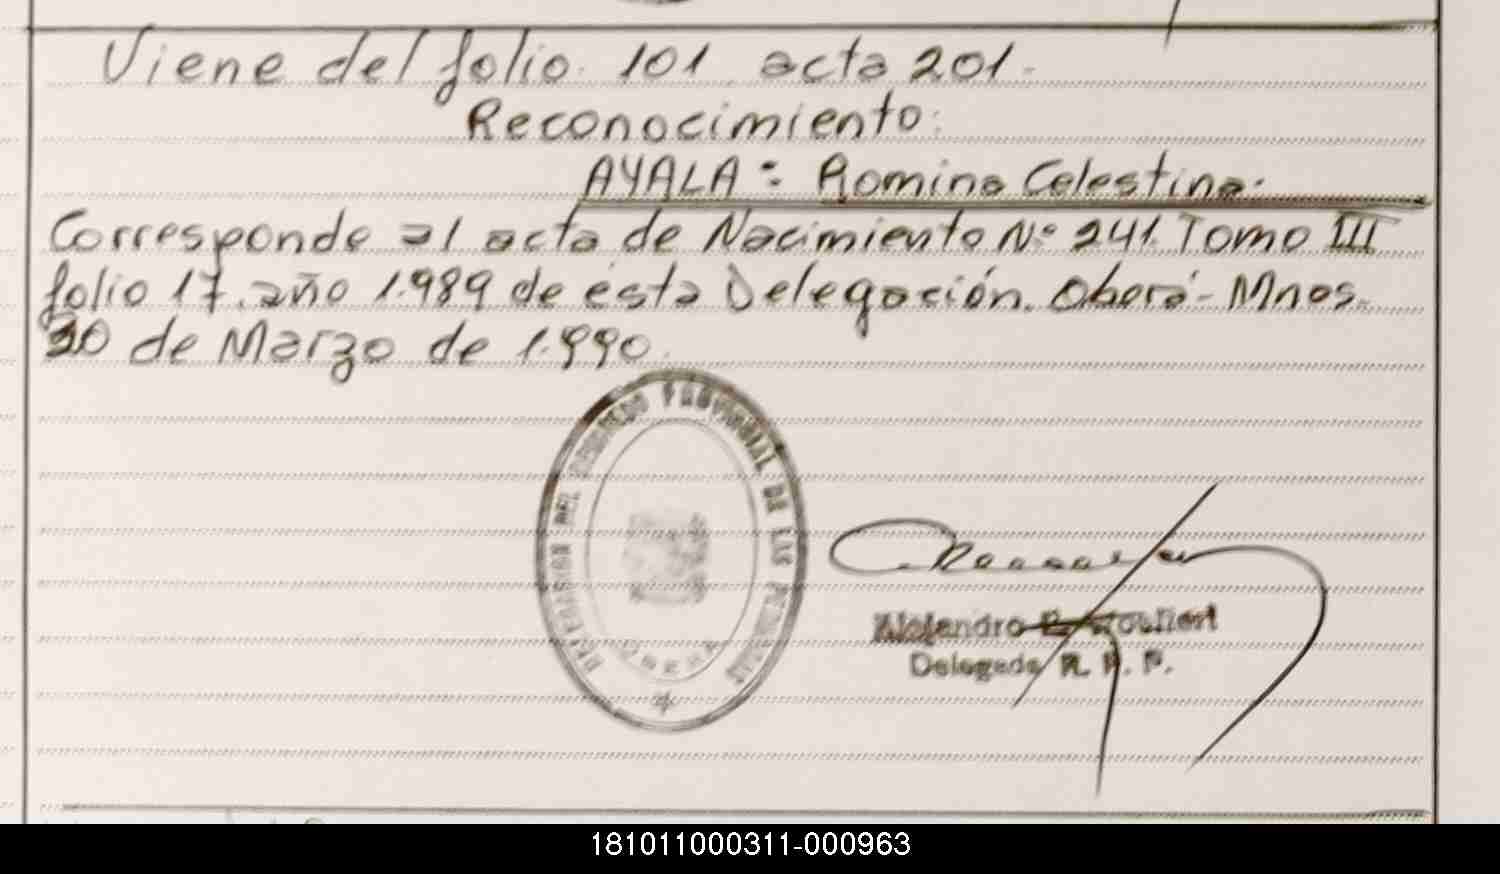 Viene del folio 101 acta 201.
Reconocimiento:
AYALA: Romina Celestina.
Corresponde al acta de Nacimiento Nº 241. Tomo III
folio 17. año 1.989 de ésta Delegación. Oberá - Mnes.
30 de Marzo de 1.990.
DELEGACION DEL REGISTRO PROVINCIAL DE LAS PERSONAS
OBERA
Alejandro
Delegado R. P. P.
181011000311-000963